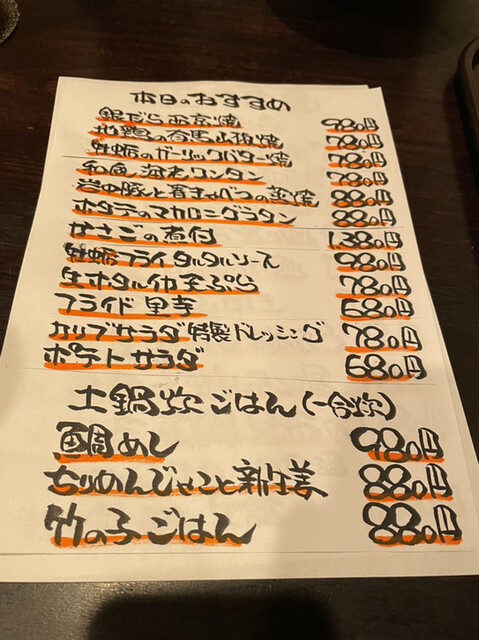 本日のおすすめ
銀だら西京焼 980円
地鶏の有馬山椒焼 780円
牡蛎のガーリックバター焼 780円
和風海老ワンタン 780円
岩中豚と春きゃべつの蒸焼 880円
ホタテのマカロニグラタン 880円
かさごの煮付 1,380円
牡蛎フライタルタルソース 980円
生ホタルイカ天ぷら 780円
フライド里芋 680円
カリブサラダ特製ドレッシング 780円
ポテトサラダ 680円
土鍋炊ごはん(一合炊)
鯛めし 980円
ちりめんじゃこと新生姜 880円
竹の子ごはん 880円